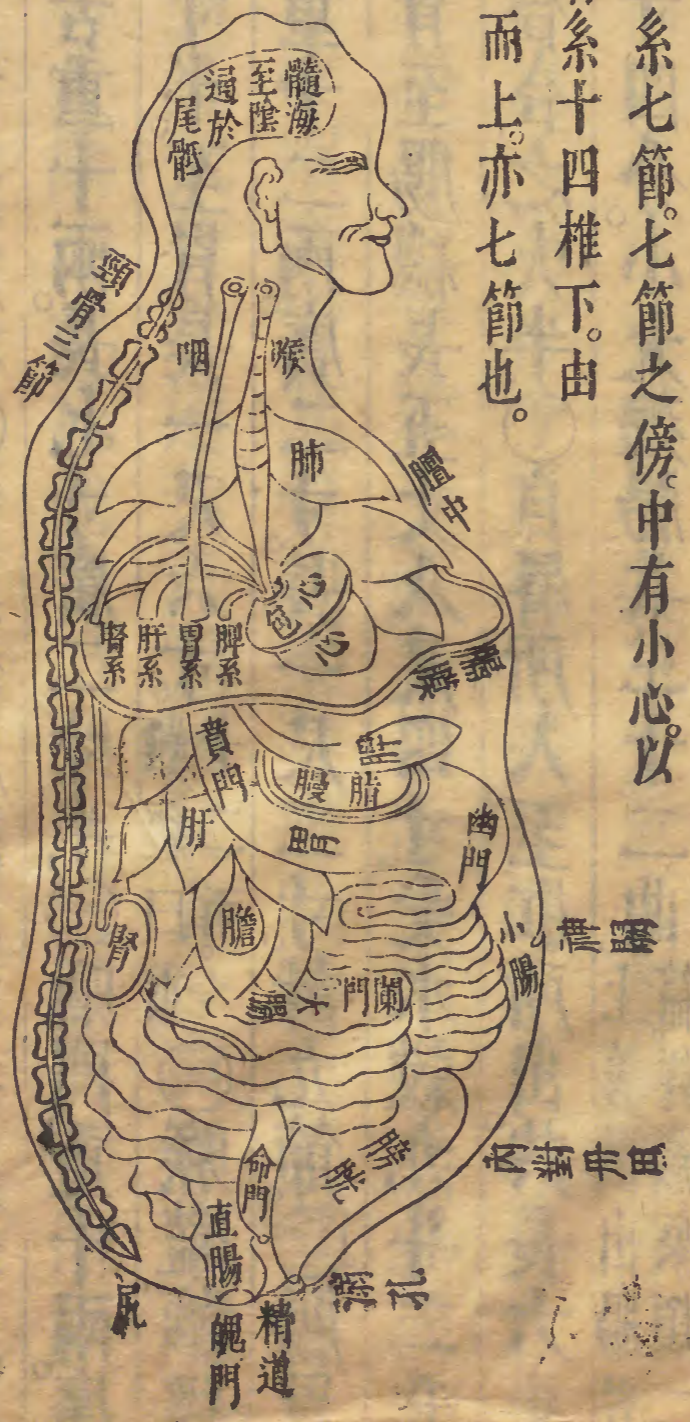 系七節。七節之傍。中有小心。以
系十四椎下。由
而上。亦七節也。
髓海
至陰
通於
尾骶
頸骨三節
咽
喉
肺
膻中
心包
心
脾系
胃系
肝系
腎系
膈膜
賁門
脾
脂膜
胃
肝
幽門
膽
腎
小腸
神闕
闌門
大腸
內對丹田
膀胱
命門
直腸
溺孔
尻
精道
魄門